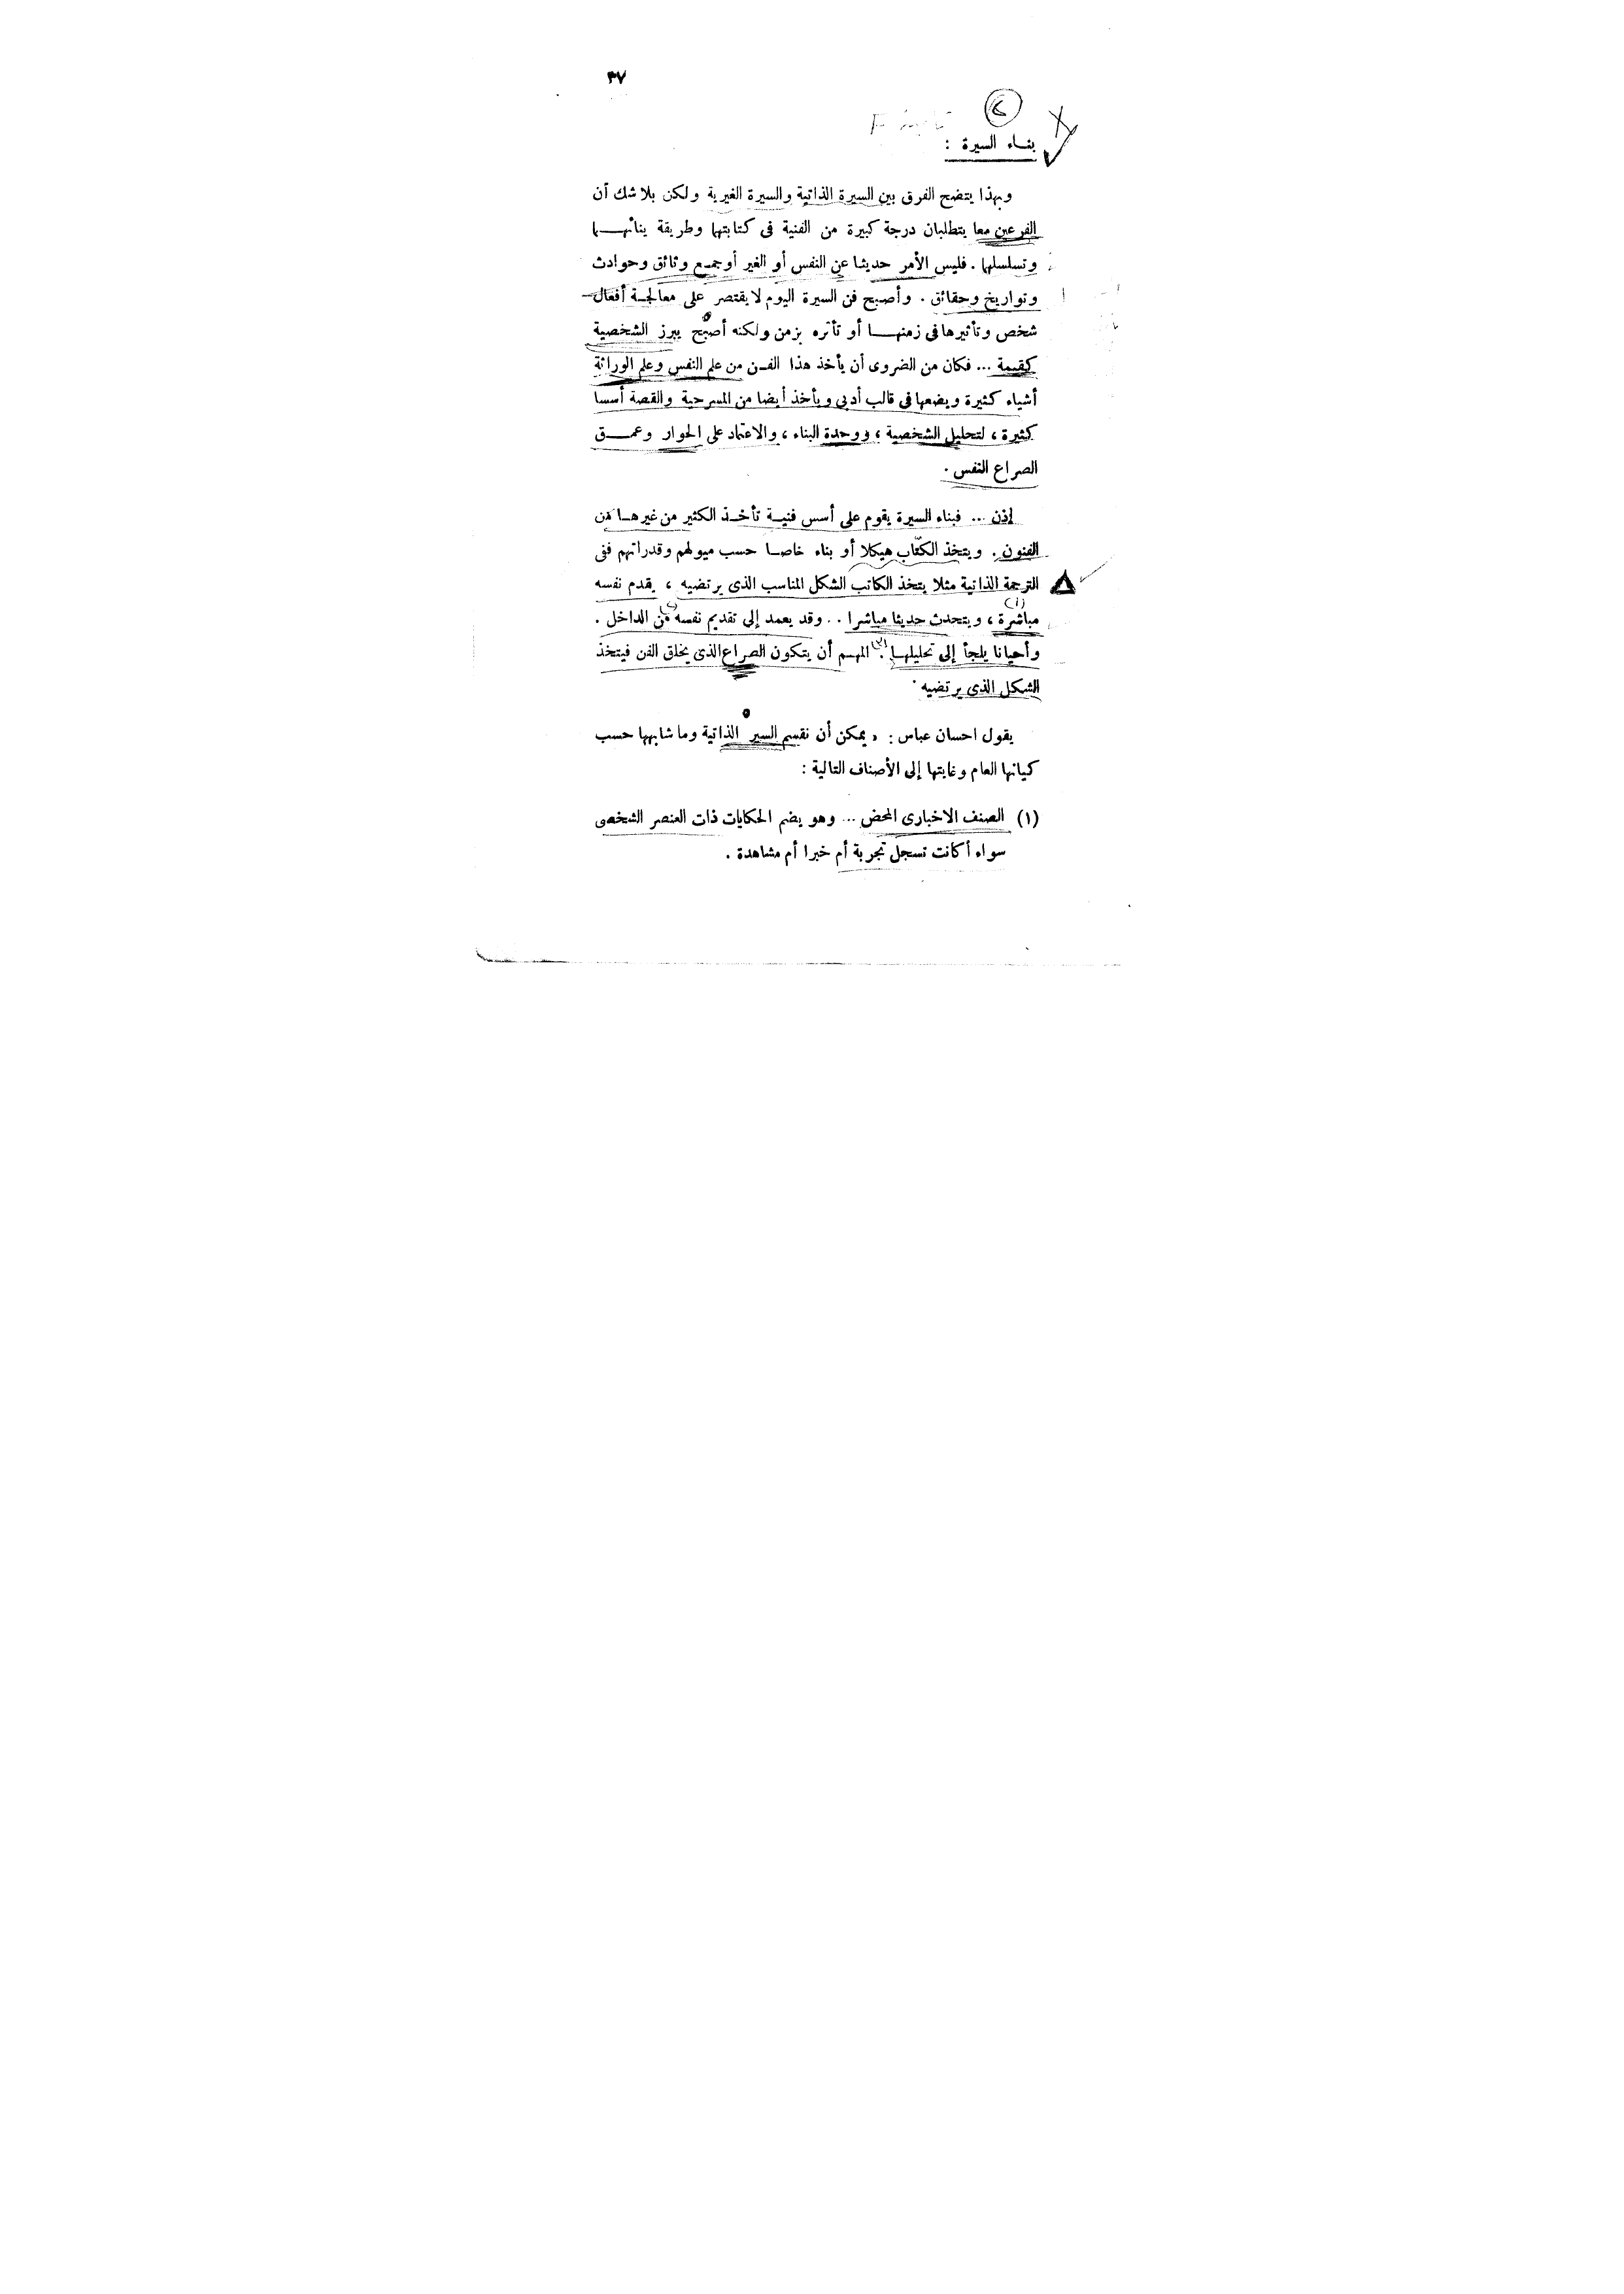 ٣٧
بناء السيرة :
وبهذا يتضح الفرق بين السيرة الذاتية والسيرة الغيرية ولكن بلا شك أن
الفرعين معا يتطلبان درجة كبيرة من الفنية فى كتابتها وطريقة ينائهـــا
وتسلسلها . فليس الأمر حديثا عن النفس أو الغير أو جمع وثائق وحوادث
وتواريخ وحقائق . وأصبح فن السيرة اليوم لا يقتصر على معالجة أفعال
شخص وتأثيرها فى زمنهـــا أو تأثره بزمن ولكنه أصبح يبرز الشخصية
كقيمة ... فكان من الضروى أن يأخذ هذا الفن من علم النفس وعلم الوراثة
أشياء كثيرة ويضعها فى قالب أدبى ويأخذ أيضا من المسرحية والقصة أسسا
كثيرة ، لتحليل الشخصية ، ووحدة البناء ، والاعتماد على الحوار وعمــق
الصراع النفس .
إذن ... فبناء السيرة يقوم على أسس فنية تأخذ الكثير من غيرها من
الفنون . ويتخذ الكتّاب هيكلا أو بناء خاصا حسب ميولهم وقدراتهم فنى
الترجمة الذاتية مثلا يتخذ الكاتب الشكل المناسب الذى يرتضيه ، يقدم نفسه
(١)
مباشرة ، ويتحدث حديثا مباشرا .. وقد يعمد إلى تقديم نفسه من الداخل .
وأحيانا يلجأ إلى تحليلها . المهم أن يتكون الصراع الذى يخلق الفن فيتخذ
الشكل الذى يرتضيه .
يقول احسان عباس : , يمكن أن نقسم السير الذاتية وما شابهها حسب
كيانها العام وغايتها إلى الأصناف التالية :
(١) الصنف الاخبارى المحض ... وهو يضم الحكايات ذات العنصر الشخصى
سواء أكانت تسجل تجربة أم خبرا أم مشاهدة .